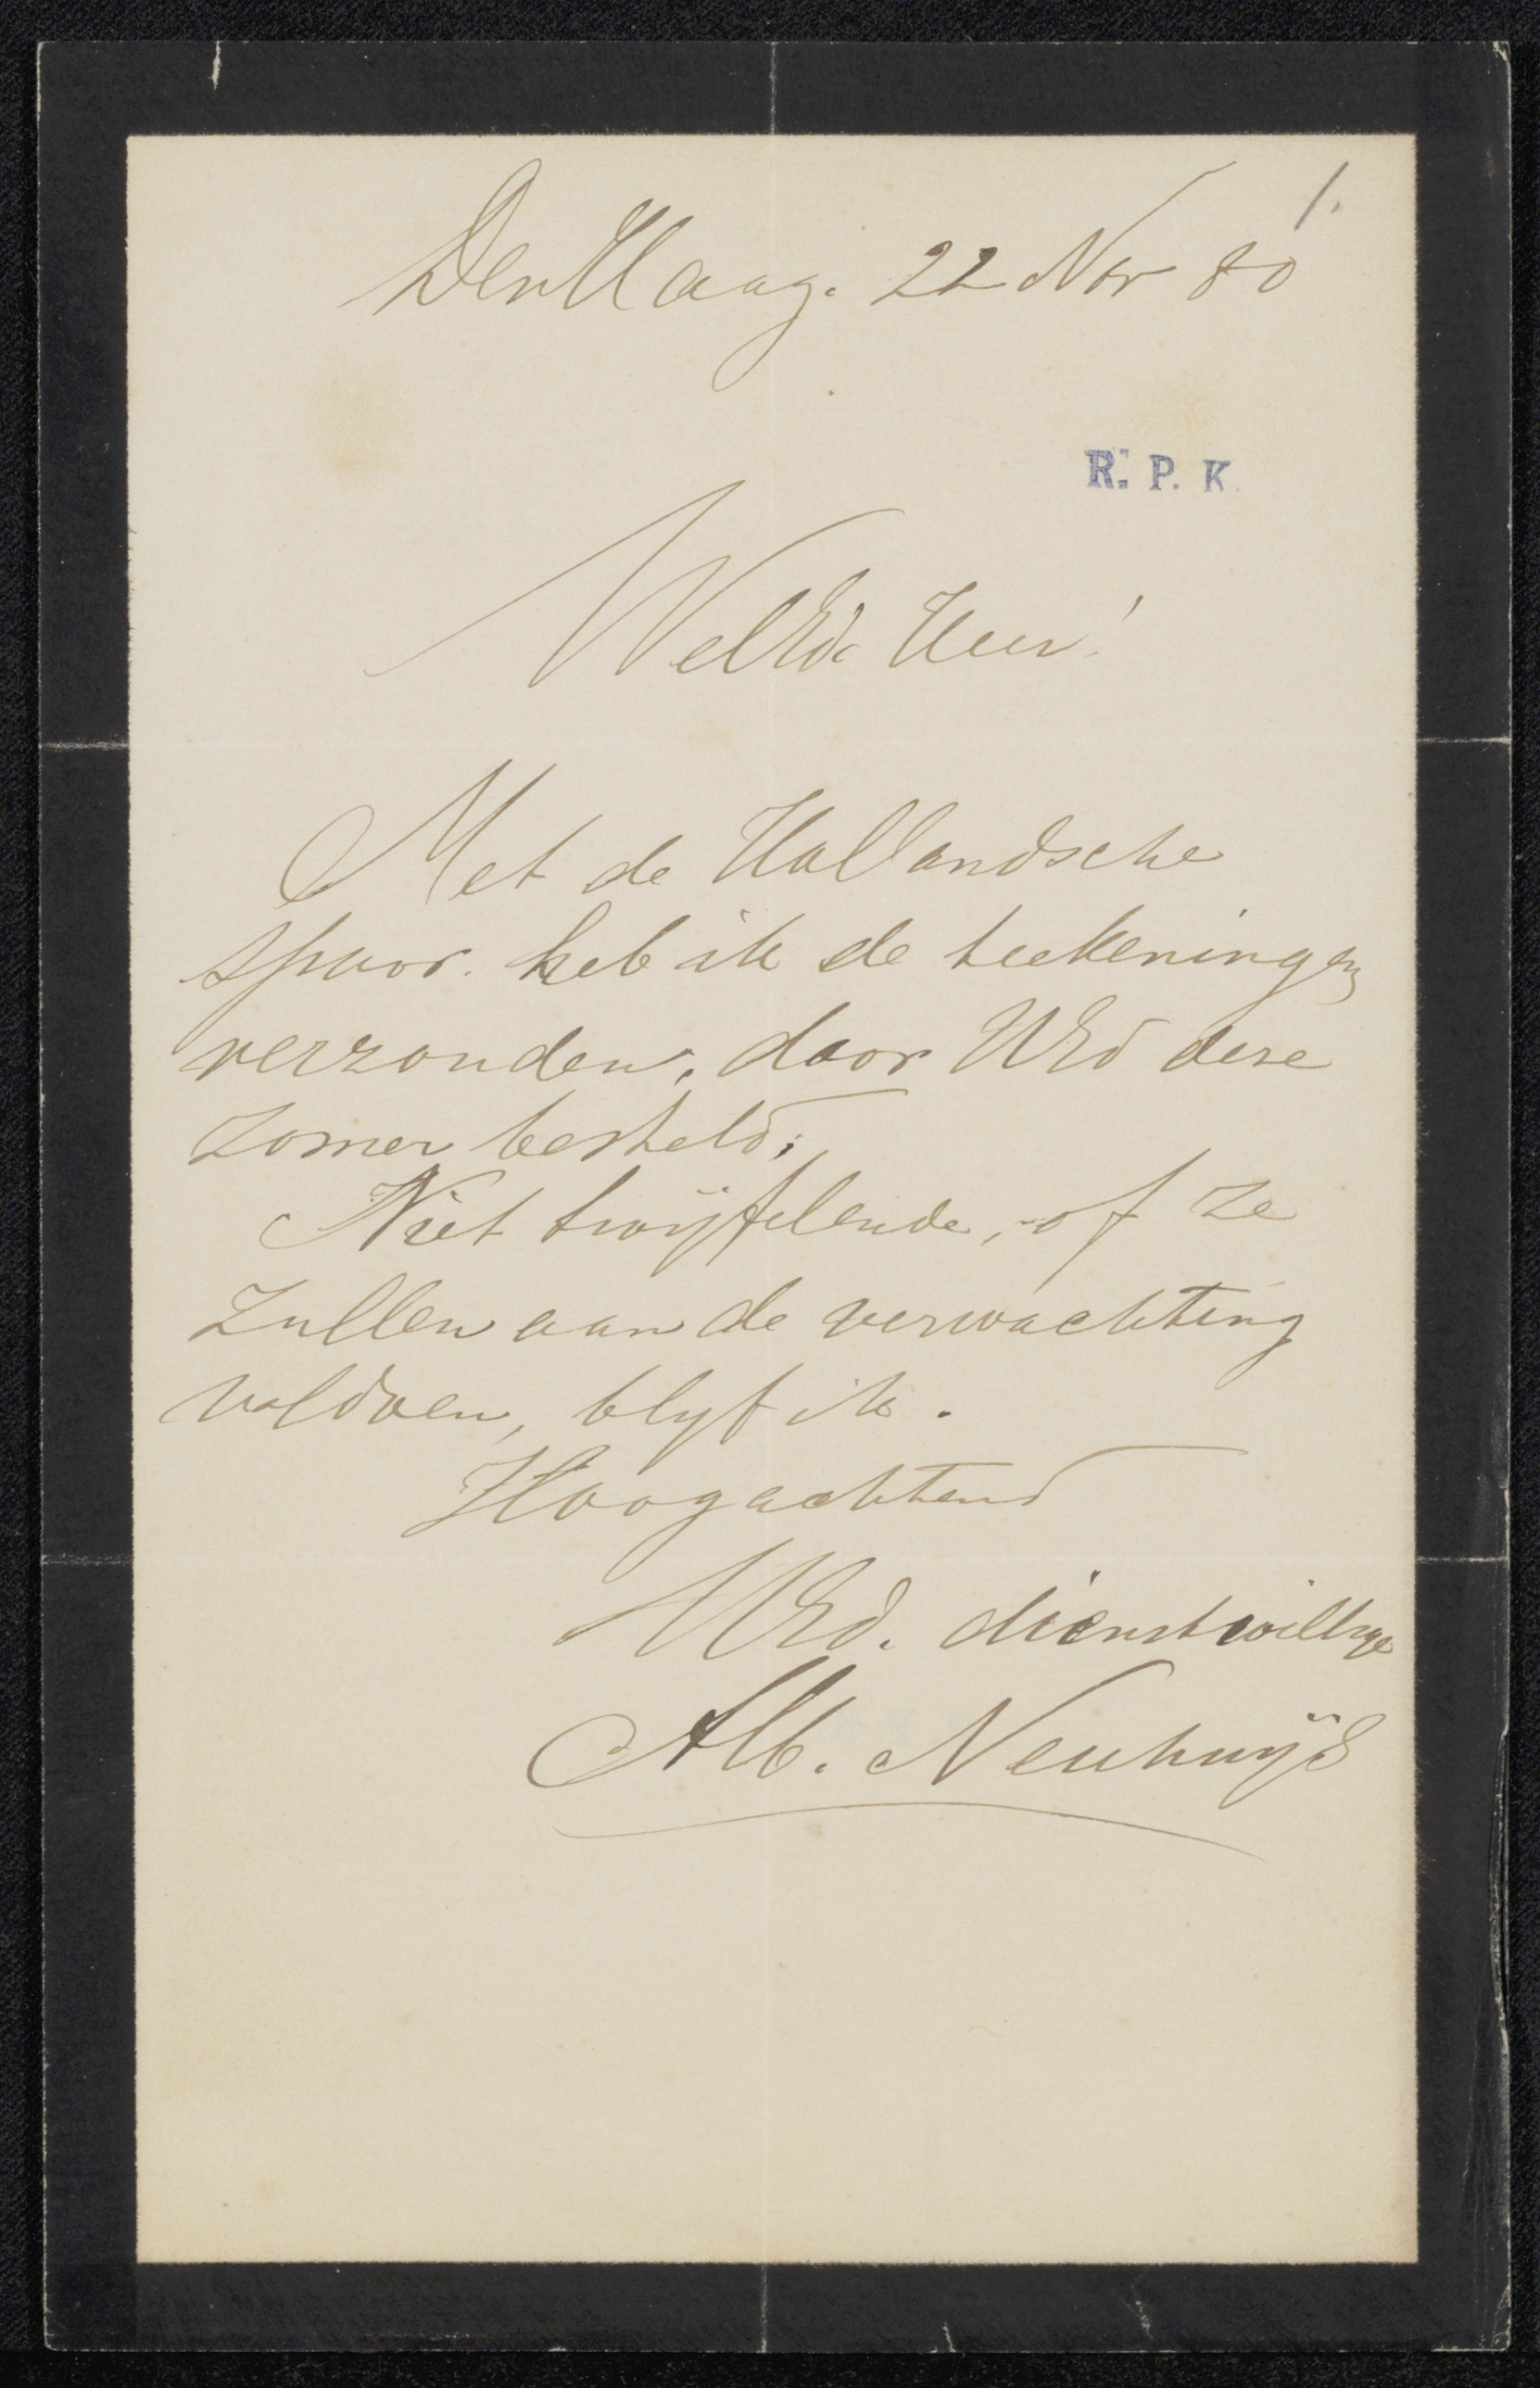 1.
Den Haag. 22 Nov 80
R. P. K.
WelEd. Heer!
Met de Hollandsche
spoor. heb ik de teekeningen
verzonden, door UEd deze
zomer besteld;
Niet twijfelende, of ze
zullen aan de verwachting
voldoen, blyf ik.
Hoogachtend
UEd. dienstwillige
Alb. Neuhuijs